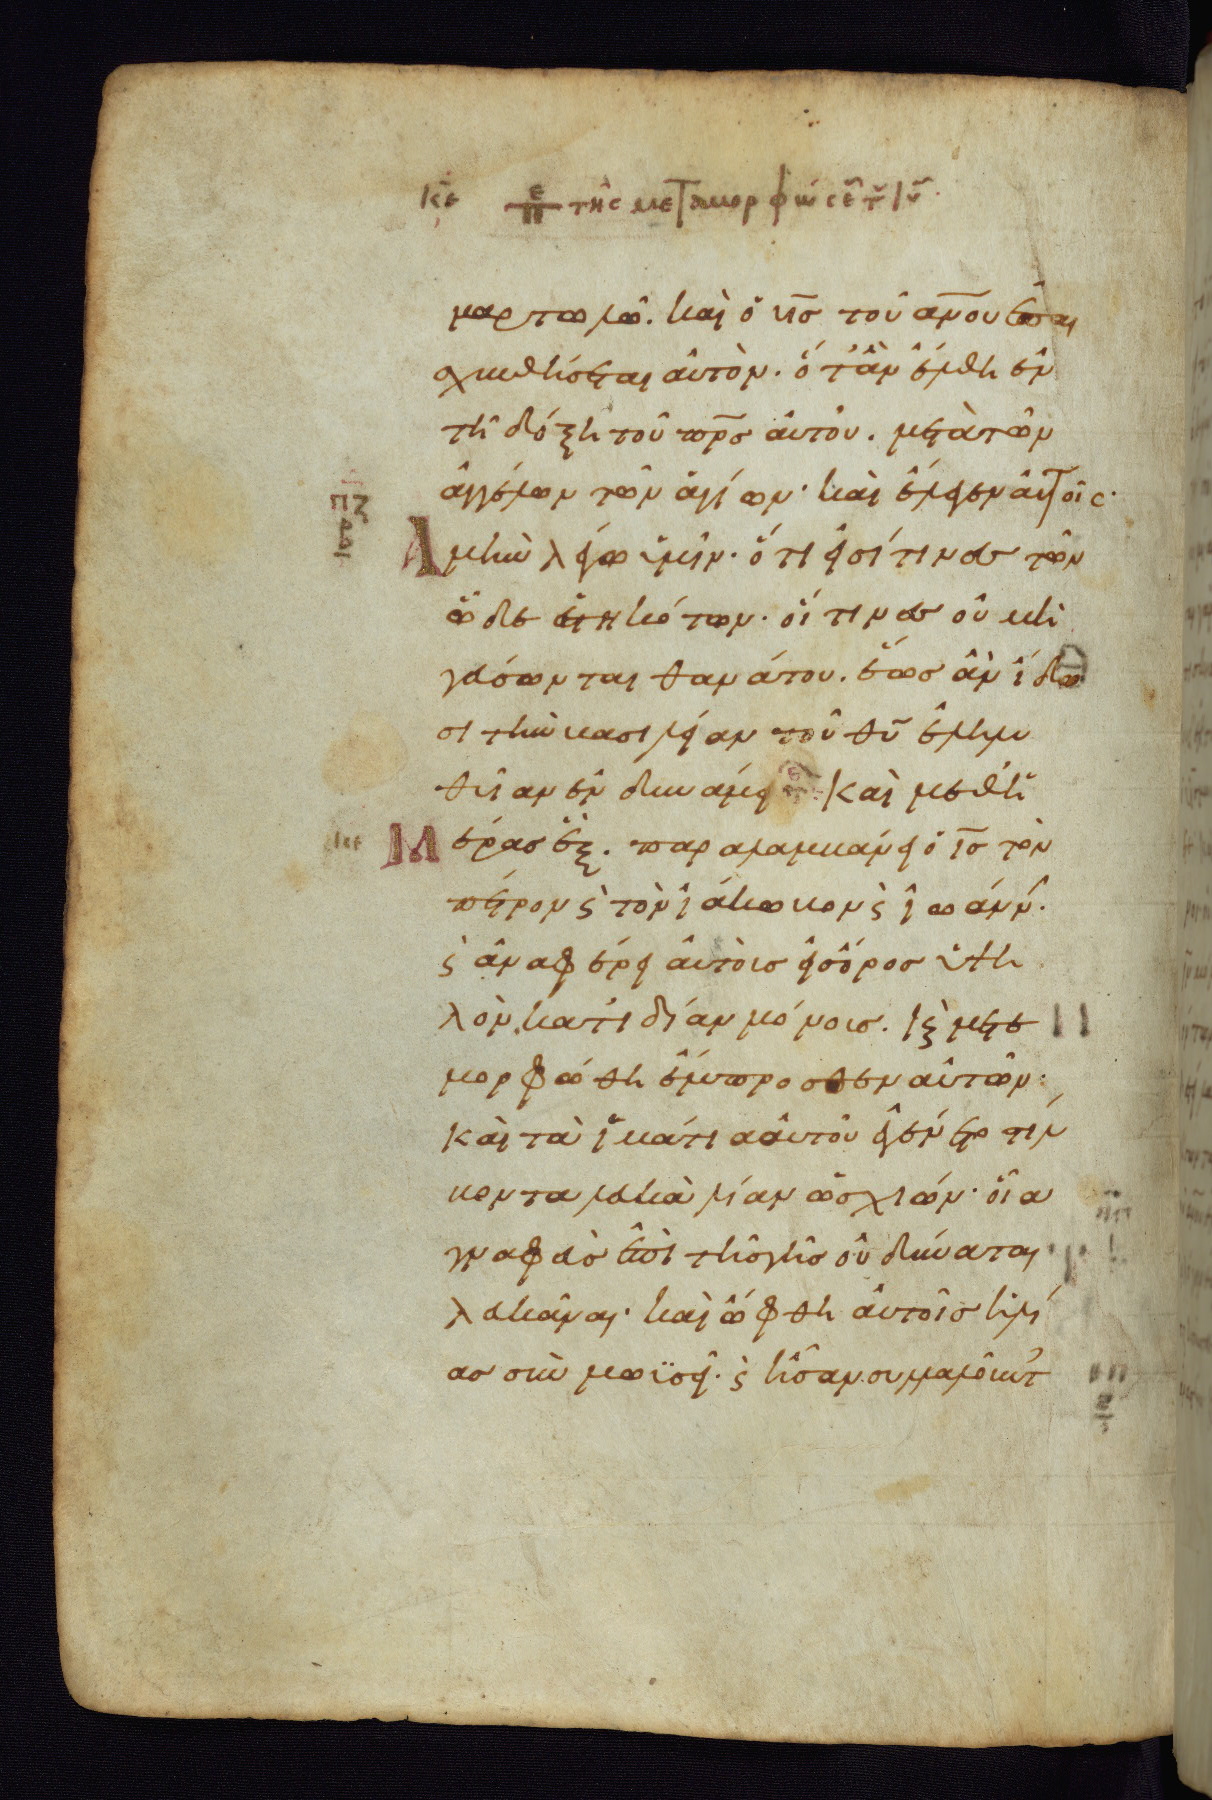 κε περὶ τῆς μεταμορφώσε τ ιυ
μαρτωλῶ. καὶ ὁ υἱσ τοῦ ανου ἐπαι
σχυνθήσεται αὐτὸν. ὅταν ἔλθη ἐν
τῆ δόξη τοῦ πρσ αὐτοῦ. μετὰ τῶν
ἀγγέλων τῶν ἁγίων. καὶ ἔλεγεν αὐτοῖς.
Ἀμὴν λέγω ὑμῖν. ὅτι εἰσί τινεσ τῶν
ὧδε ἑστηκότων. οἵ τινεσ οὐ μὴ
γεύσωνται θανάτου. ἕωσ ἂν ἴδω
σι τὴν βασιλείαν τοῦ θυ ἐληλυ
θυῖαν ἐν δυνάμει Καὶ μεθ ἡ
Μ έρασ ἓξ. παραλαμβάνει ὁ ισ τὸν
πέτρον ϛ τὸν ἰάκωβον ϛ ἰωάνν.
ϛ ἀναφέρει αὐτοὺσ εἰσ ὄροσ ὑψη
λὸν κατ ιδίαν μόνουσ. κς μετε
μορφώθη ἔμπροσθεν αὐτῶν.
Καὶ τὰ ἱμάτια αὐτοῦ ἐγένετο στίλ
βοντα λευκὰ λίαν ὡσ χιών. οἷα
γναφεὺσ ἐπὶ τῆσ γῆσ οὐ δύναται
λευκᾶναι. καὶ ὤφθη αὐτοῖσ ἡλί
ασ σὺν μωϋσεῖ. ϛ ἦσαν συλλαλοῦντ